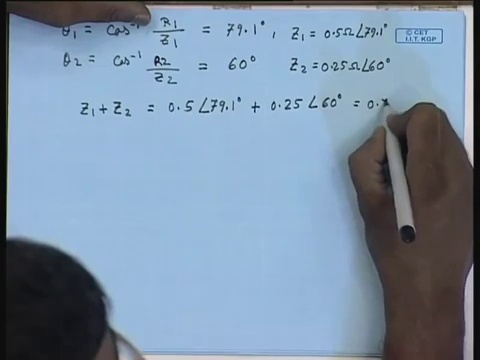 θ1 = cos⁻¹ R1/Z1 = 79.1°, Z1 = 0.5Ω∠79.1°
© CET
I.I.T. KGP
θ2 = cos⁻¹ R2/Z2 = 60° Z2 = 0.25Ω∠60°
Z1 + Z2 = 0.5∠79.1° + 0.25∠60° = 0.